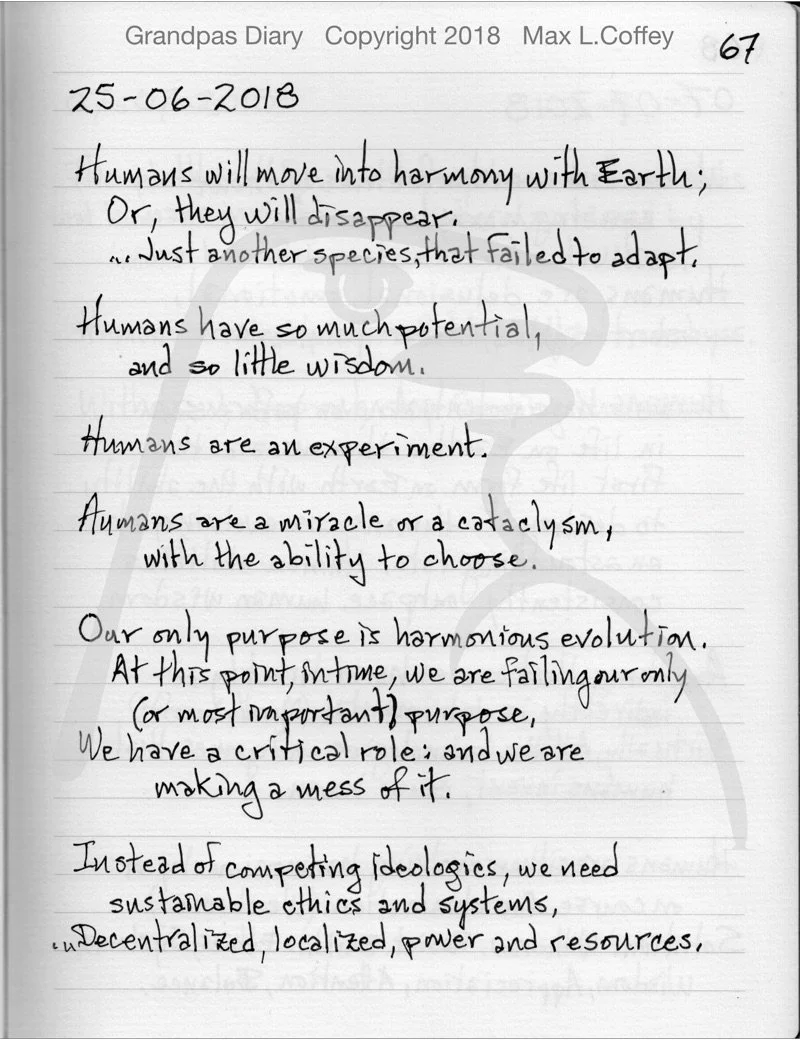 Grandpas Diary Copyright 2018 Max L.Coffey
67
25-06-2018
Humans will move into harmony with Earth;
Or, they will disappear.
... Just another species, that failed to adapt.
Humans have so much potential,
and so little wisdom.
Humans are an experiment.
Humans are a miracle or a cataclysm,
with the ability to choose.
Our only purpose is harmonious evolution.
At this point, in time, we are failing our only
(or most important) purpose,
We have a critical role: and we are
making a mess of it.
Instead of competing ideologies, we need
sustainable ethics and systems,
... Decentralized, localized, power and resources.